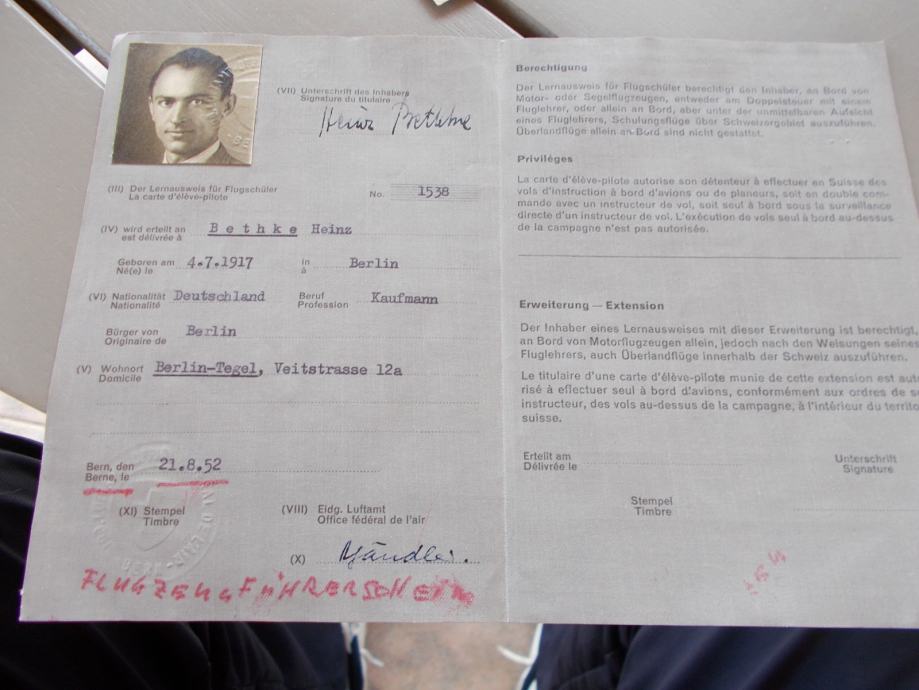 (VII) Unterschrift des Inhabers
Signature du titulaire
Heinz Bethke
(III) Der Lernausweis für Flugschüler
La carte d'élève-pilote
No. 1538
(IV) wird erteilt an
est délivrée à
Bethke Heinz
Geboren am
Né(e) le
4.7.1917
in
à
Berlin
(VI) Nationalität
Nationalité
Deutschland
Beruf
Profession
Kaufmann
Bürger von
Originaire de
Berlin
(V) Wohnort
Domicile
Berlin-Tegel, Veitstrasse 12a
Bern, den
Berne, le
21.8.52
(XI) Stempel
Timbre
(VIII) Eidg. Luftamt
Office fédéral de l'air
(X)
FLUGZEUGFÜHRERSCHEIN
Berechtigung
Der Lernausweis für Flugschüler berechtigt den Inhaber, an Bord von
Motor- oder Segelflugzeugen, entweder am Doppelsteuer mit einem
Fluglehrer, oder allein an Bord, aber unter der unmittelbaren Aufsicht
eines Fluglehrers, Schulungsflüge über Schweizergebiet auszuführen.
Überlandflüge allein an Bord sind nicht gestattet.
Privilèges
La carte d'élève-pilote autorise son détenteur à effectuer en Suisse des
vols d'instruction à bord d'avions ou de planeurs, soit en double com-
mande avec un instructeur de vol, soit seul à bord sous la surveillance
directe d'un instructeur de vol. L'exécution de vols seul à bord au-dessus
de la campagne n'est pas autorisée.
Erweiterung — Extension
Der Inhaber eines Lernausweises mit dieser Erweiterung ist berechtigt,
an Bord von Motorflugzeugen allein, jedoch nach den Weisungen seines
Fluglehrers, auch Überlandflüge innerhalb der Schweiz auszuführen.
Le titulaire d'une carte d'élève-pilote munie de cette extension est auto
risé à effectuer seul à bord d'avions, conformément aux ordres de s
instructeur, des vols au-dessus de la campagne, à l'intérieur du territo
suisse.
Erteilt am
Délivrée le
Unterschrift
Signature
Stempel
Timbre